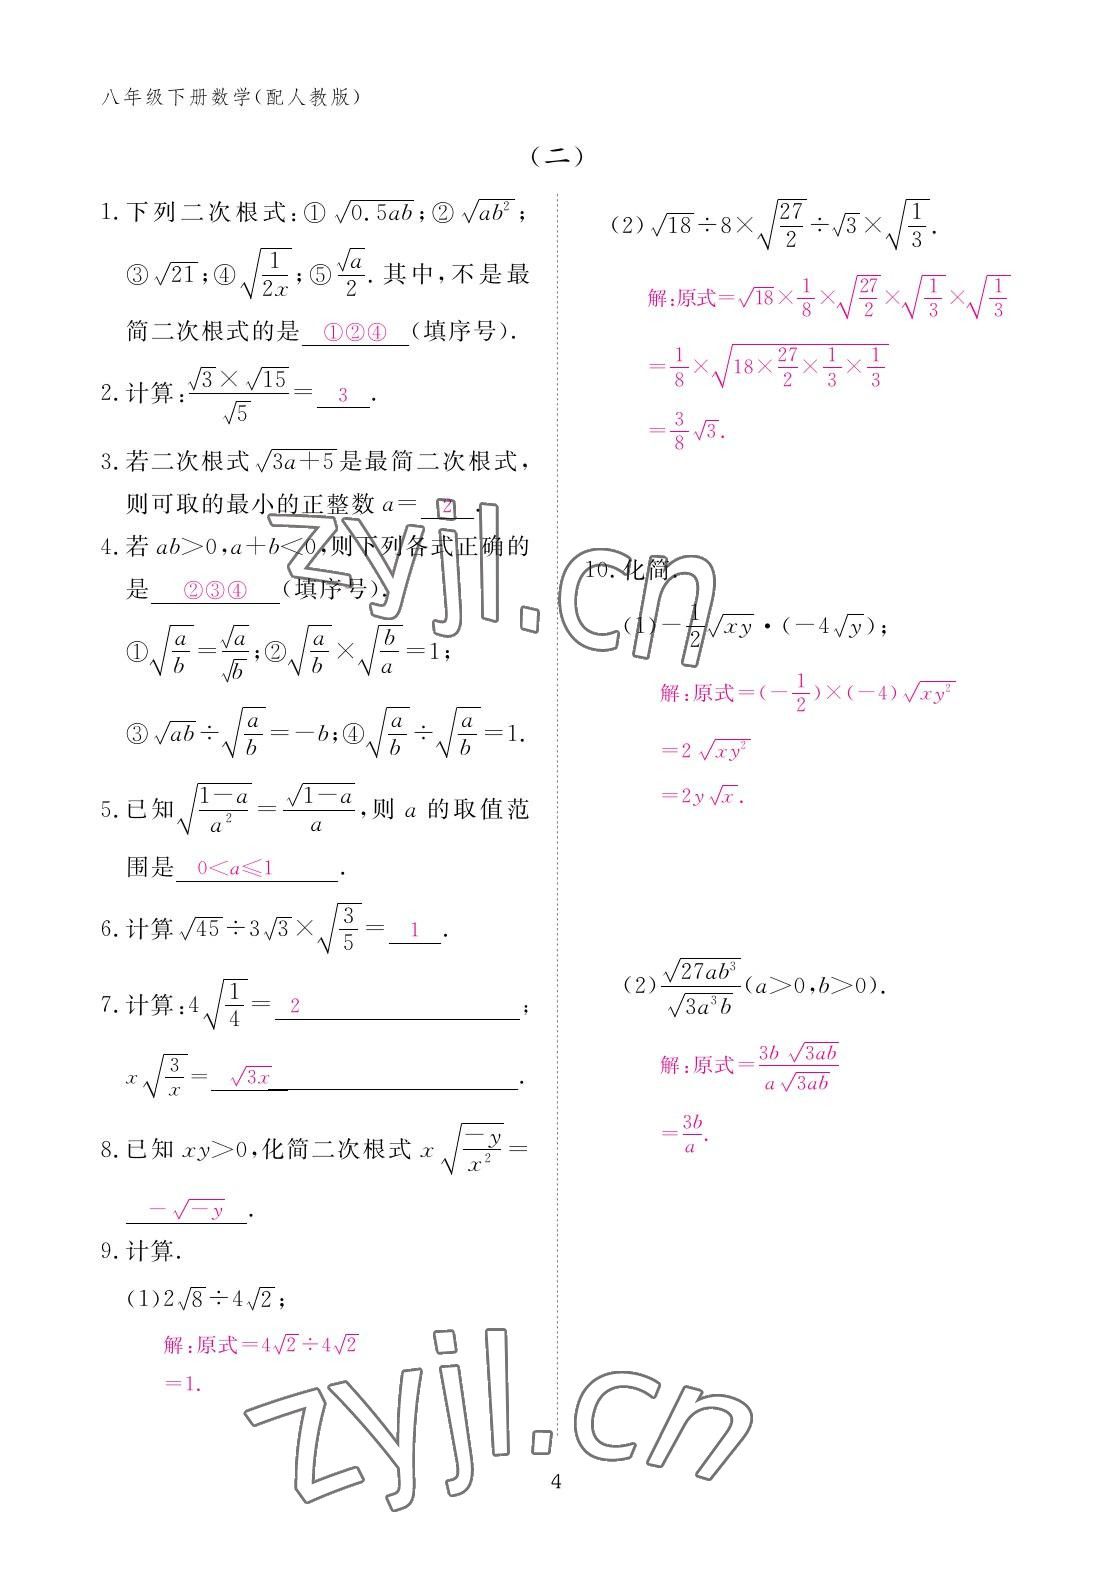 八年级下册数学(配人教版)
(二)
1. 下列二次根式:① √(0.5ab);② √(ab²);
③ √21;④ √(1/(2x));⑤ √a/2. 其中,不是最
简二次根式的是 ①②④ (填序号).
2. 计算:(√3×√15)/√5= 3 .
3. 若二次根式√(3a+5)是最简二次根式,
则可取的最小的正整数 a= 2 .
4. 若 ab>0,a+b<0,则下列各式正确的
是 ②③④ (填序号).
①√(a/b)=√a/√b;②√(a/b)×√(b/a)=1;
③ √(ab)÷√(a/b)=-b;④√(a/b)÷√(a/b)=1.
5. 已知√((1-a)/a²)=√(1-a)/a,则 a 的取值范
围是 0<a≤1 .
6. 计算 √45÷3√3×√(3/5)= 1 .
7. 计算:4√(1/4)= 2 ;
x√(3/x)= √(3x) .
8. 已知 xy>0,化简二次根式 x√(-y/x²)=
-√(-y) .
9. 计算.
(1)2√8÷4√2;
解:原式=4√2÷4√2
=1.
(2)√18÷8×√(27/2)÷√3×√(1/3).
解:原式=√18×1/8×√(27/2)×√(1/3)×√(1/3)
=1/8×√(18×27/2×1/3×1/3)
=3/8√3.
10. 化简.
(1)-1/2√(xy)·(-4√y);
解:原式=(-1/2)×(-4)√(xy²)
=2√(xy²)
=2y√x.
(2)√(27ab³)/√(3a³b)(a>0,b>0).
解:原式=3b√(3ab)/a√(3ab)
=3b/a.
zyjl.cn
zyjl.cn
4